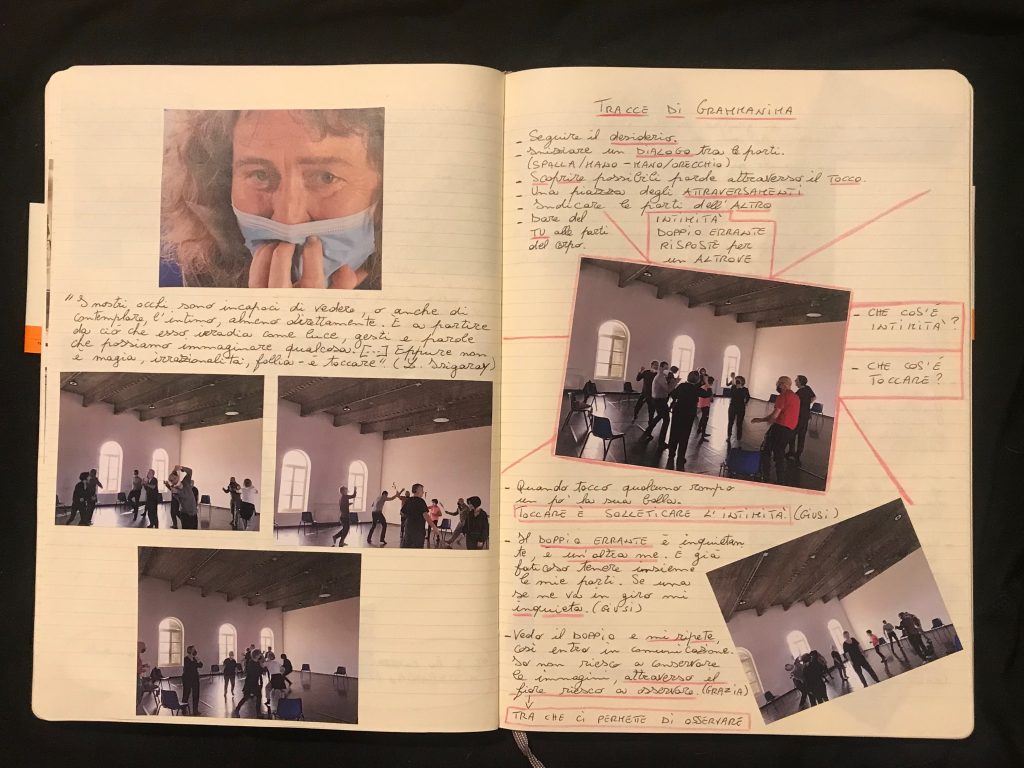 "I nostri occhi sono incapaci di vedere, o anche di
contemplare, l'intimo, almeno direttamente. È a partire
da ciò che esso irradia come luce, gesti e parole
che possiamo immaginare qualcosa. [...] Eppure non
è magia, irrazionalità, follia - è toccare". (L. Irigaray)
TRACCE DI GRAMMANIMA
- Seguire il desiderio.
- Iniziare un DIALOGO tra le parti.
(SPALLA/MANO - MANO/ORECCHIO)
- Scoprire possibili parole attraverso il TOCCO.
- Una piazza degli ATTRAVERSAMENTI
- Indicare le parti dell'ALTRO
- Dare del
TU alle parti
del corpo.
INTIMITÀ
DOPPIO ERRANTE
RISPOSTE per
un ALTROVE
- CHE COS'É
INTIMITÀ?
- CHE COS'É
TOCCARE?
- Quando tocco qualcuno rompo
un po' la sua bolla.
TOCCARE È SOLLETICARE L'INTIMITÀ. (GIUSI)
- Il DOPPIO ERRANTE è inquietan
te, è un'altra me. È già
faticoso tenere insieme
le mie parti. Se una
se ne va in giro mi
inquieta. (GIUSI)
- Vedo il DOPPIO e mi ripete,
così entro in comunicazione.
Io non riesco a conservare
le immagini, attraverso el
fiore riesco a osservare. (GRAZIA)
TRA CHE CI PERMETTE DI OSSERVARE